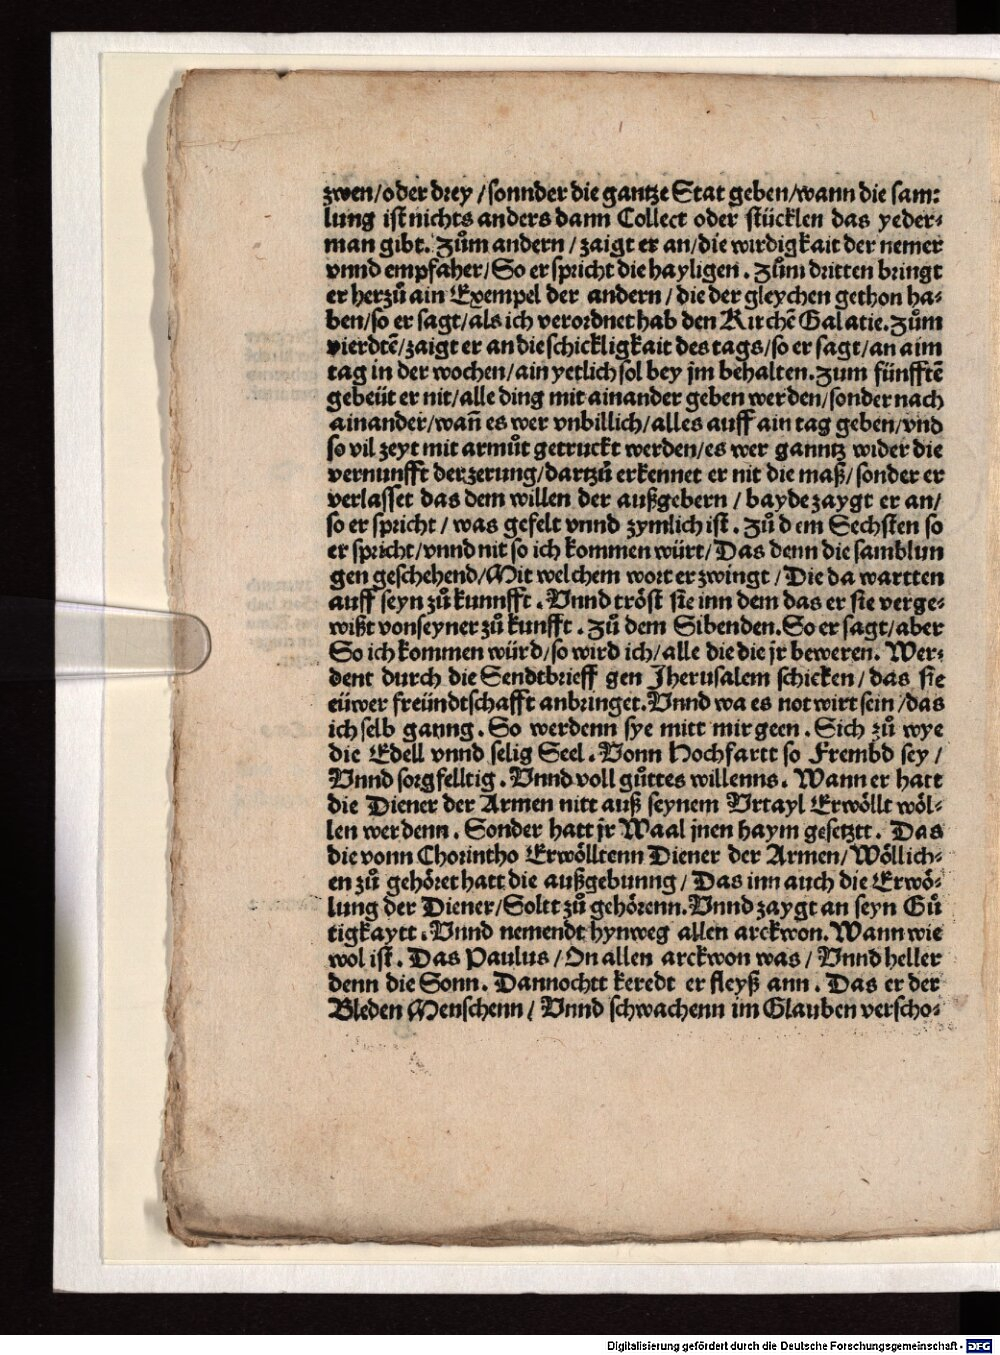 zwen/oder drey/sonnder die gantze Stat geben/wann die sam:
lung ist nichts anders dann Collect oder stücklen das yeder⸗
man gibt. Zům andern/zaigt er an/die wirdigkait der nemer
vnnd empfaher/So er spricht die hayligen. Zům dritten bringt
er herzů ain Exempel der andern/die der gleychen gethon ha⸗
ben/so er sagt/als ich verordnet hab den Kirchẽ Galatie. Zům
vierdtẽ/zaigt er an die schickligkait des tags/so er sagt/an aim
tag in der wochen/ain yetlich sol bey jm behalten. Zum fünfftẽ
gebeüt er nit/alle ding mit ainander geben werden/sonder nach
ainander/wañ es wer vnbillich/alles auff ain tag geben/vnd
so vil zeyt mit armůt getruckt werden/es wer ganntz wider die
vernunfft der zerung/dartzů erkennet er nit die maß/sonder er
verlasset das dem willen der außgebern/bayde zaygt er an/
so er spricht/was gefelt vnnd zymlich ist. Zů dem Sechsten so
er spricht/vnnd nit so ich kommen würt/Das denn die samblun
gen geschehend/Mit welchem wort er zwingt/Die da wartten
auff seyn zů kunnfft. Vnnd tröst sie inn dem das er sie verge⸗
wißt von seyner zů kunfft. Zů dem Sibenden. So er sagt/aber
So ich kommen würd/so wird ich/alle die die jr beweren. Wer⸗
dent durch die Sendtbrieff gen Jherusalem schicken/das sie
eüwer freündtschafft anbringet. Vnnd wa es not wirt sein/das
ich selb ganng. So werdenn sye mitt mir geen. Sich zů wye
die Edell vnnd selig Seel. Vonn Hochfartt so Frembd sey/
Vnnd sorgfelltig. Vnnd voll gůttes willenns. Wann er hatt
die Diener der Armen nitt auß seynem Vrtayl Erwöllt wöl⸗
len werdenn. Sonder hatt jr Waal jnen haym gesetztt. Das
die vonn Chorintho Erwölltenn Diener der Armen/Wöllich⸗
en zů gehöret hatt die außgebunng/Das inn auch die Erwö⸗
lung der Diener/Soltt zů gehörenn. Vnnd zaygt an seyn Gů
tigkaytt. Vnnd nemendt hynweg allen arckwon. Wann wie
wol ist. Das Paulus/On allen arckwon was/Vnnd heller
denn die Sonn. Dannochtt keredt er fleyß ann. Das er der
Bleden Menschenn/Vnnd schwachenn im Glauben verscho⸗
Digitalisierung gefördert durch die Deutsche Forschungsgemeinschaft - DFG